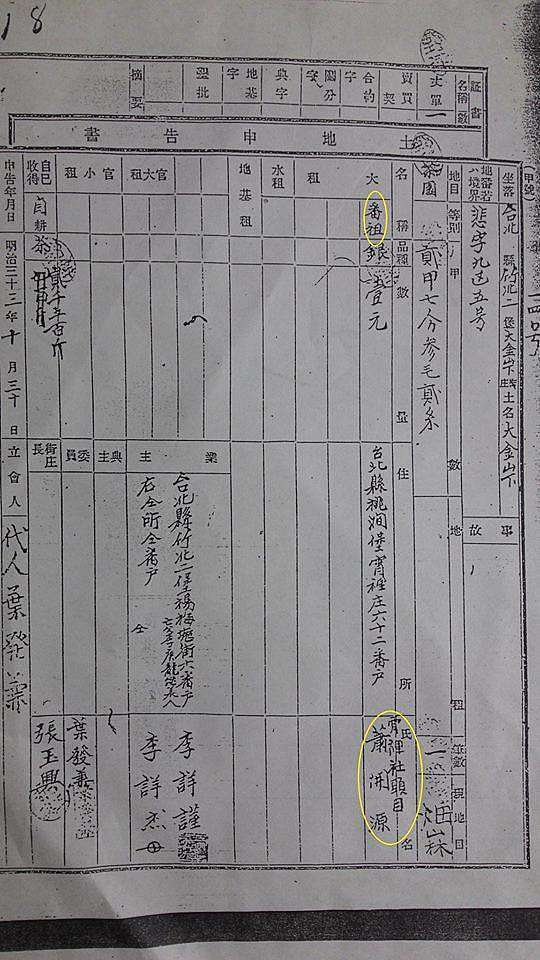 18
証書名稱數
丈單一
賣買契
合約字
鬮分字
典字
地基字
墾批
摘要
土地申告書
甲號
坐落 台北縣竹北二堡大金山下庄土名大金山下
地番若ハ境界 悲字九百五号
事故
地目 茶園
等則
甲數 貳甲七分參毛貳糸
地租
筆數 一
現地目 畑 森
名稱
品種
數量
住所
氏名
大租
番租
銀
壹元
台北縣桃澗堡霄裡庄六十二番戶
霄裡社頭目
蕭開源
水租
地基租
官大租
官小租
業主
台北縣竹北二堡楊梅壢街六番戶
李詳謹
右仝所仝番戶
仝
李詳杰
典主
委員
葉發
街庄長
張玉興
自己收得
自耕
茶
申告年月日 明治三十三年十月三十日
立會人
代人 葉發